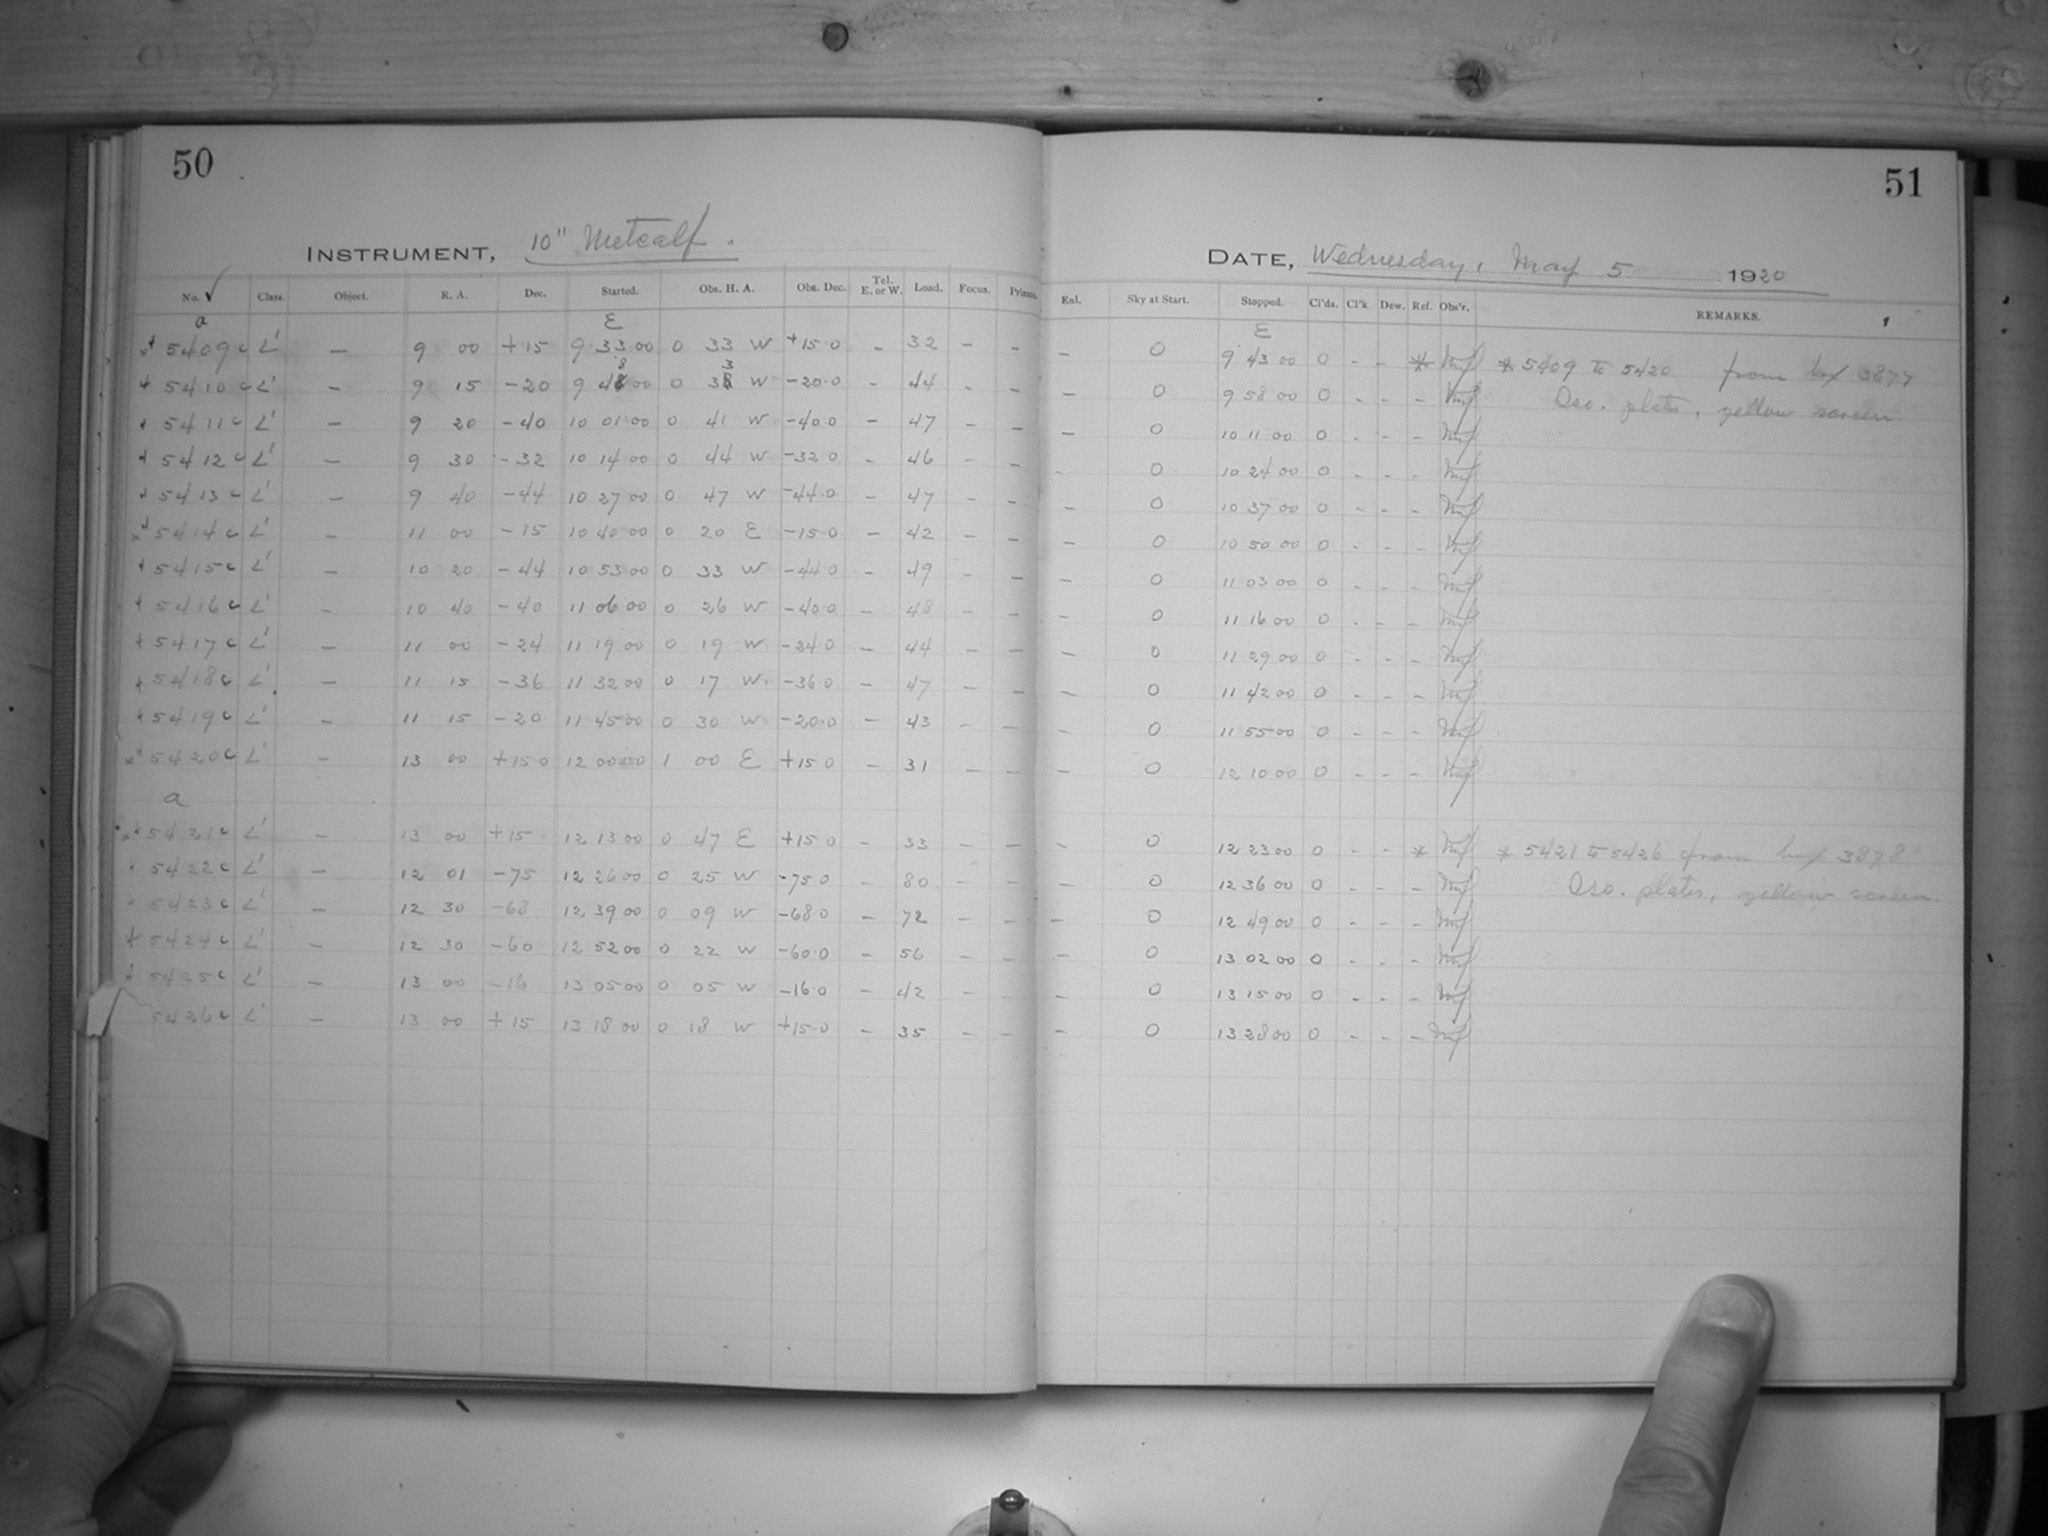 50
51
INSTRUMENT, 10" Metcalf.
DATE, Wednesday, May 5 1920
No. ✓ Class. Object. R. A. Dec. Started. Obs. H. A. Obs. Dec. Tel. E. or W. Load. Focus. Prisms. Eal. Sky at Start. Stopped. Cl'ds. Cl'k Dew. Ref. Obs'r. REMARKS.
a E E
5409 c L' — 9 00 +15 9 33 00 0 33 W +15.0 - 32 - - - 0 9 43 00 0 - - * * 5409 to 5420 from box 3877
5410 c L' — 9 15 -20 9 48 00 0 33 W -20.0 - 44 - - - 0 9 58 00 0 - - - Iso. plates, yellow screen.
5411 c L' — 9 20 -40 10 01 00 0 41 W -40.0 - 47 - - - 0 10 11 00 0 - - -
5412 c L' — 9 30 -32 10 14 00 0 44 W -32.0 - 46 - - - 0 10 24 00 0 - - -
5413 c L' — 9 40 -44 10 27 00 0 47 W -44.0 - 47 - - - 0 10 37 00 0 - - -
5414 c L' — 11 00 -15 10 40 00 0 20 E -15.0 - 42 - - - 0 10 50 00 0 - - -
5415 c L' — 10 20 -44 10 53 00 0 33 W -44.0 - 49 - - - 0 11 03 00 0 - - -
5416 c L' - 10 40 -40 11 06 00 0 26 W -40.0 - 48 - - - 0 11 16 00 0 - - -
5417 c L' — 11 00 -24 11 19 00 0 19 W -24.0 - 44 - - - 0 11 29 00 0 - - -
5418 c L' — 11 15 -36 11 32 00 0 17 W. -36.0 - 47 - - - 0 11 42 00 0 - - -
5419 c L' — 11 15 -20 11 45 00 0 30 W -20.0 - 43 - - - 0 11 55 00 0 - - -
5420 c L' — 13 00 +15 0 12 00 00 1 00 E +15.0 - 31 - - - 0 12 10 00 0 - - -
a
5421 c L' — 13 00 +15 12 13 00 0 47 E +15.0 - 33 - - - 0 12 23 00 0 - - * * 5421 to 5426 from box 3878
5422 c L' — 12 01 -75 12 26 00 0 25 W -75.0 - 80 - - - 0 12 36 00 0 - - - Iso. plates, yellow screen.
5423 c L' — 12 30 -68 12 39 00 0 09 W -68.0 - 72 - - - 0 12 49 00 0 - - -
5424 c L' — 12 30 -60 12 52 00 0 22 W -60.0 - 56 - - - 0 13 02 00 0 - - -
5425 c L' — 13 00 -16 13 05 00 0 05 W -16.0 - 42 - - - 0 13 15 00 0 - - -
5426 c L' — 13 00 +15 13 18 00 0 18 W +15.0 - 35 - - - 0 13 28 00 0 - - -